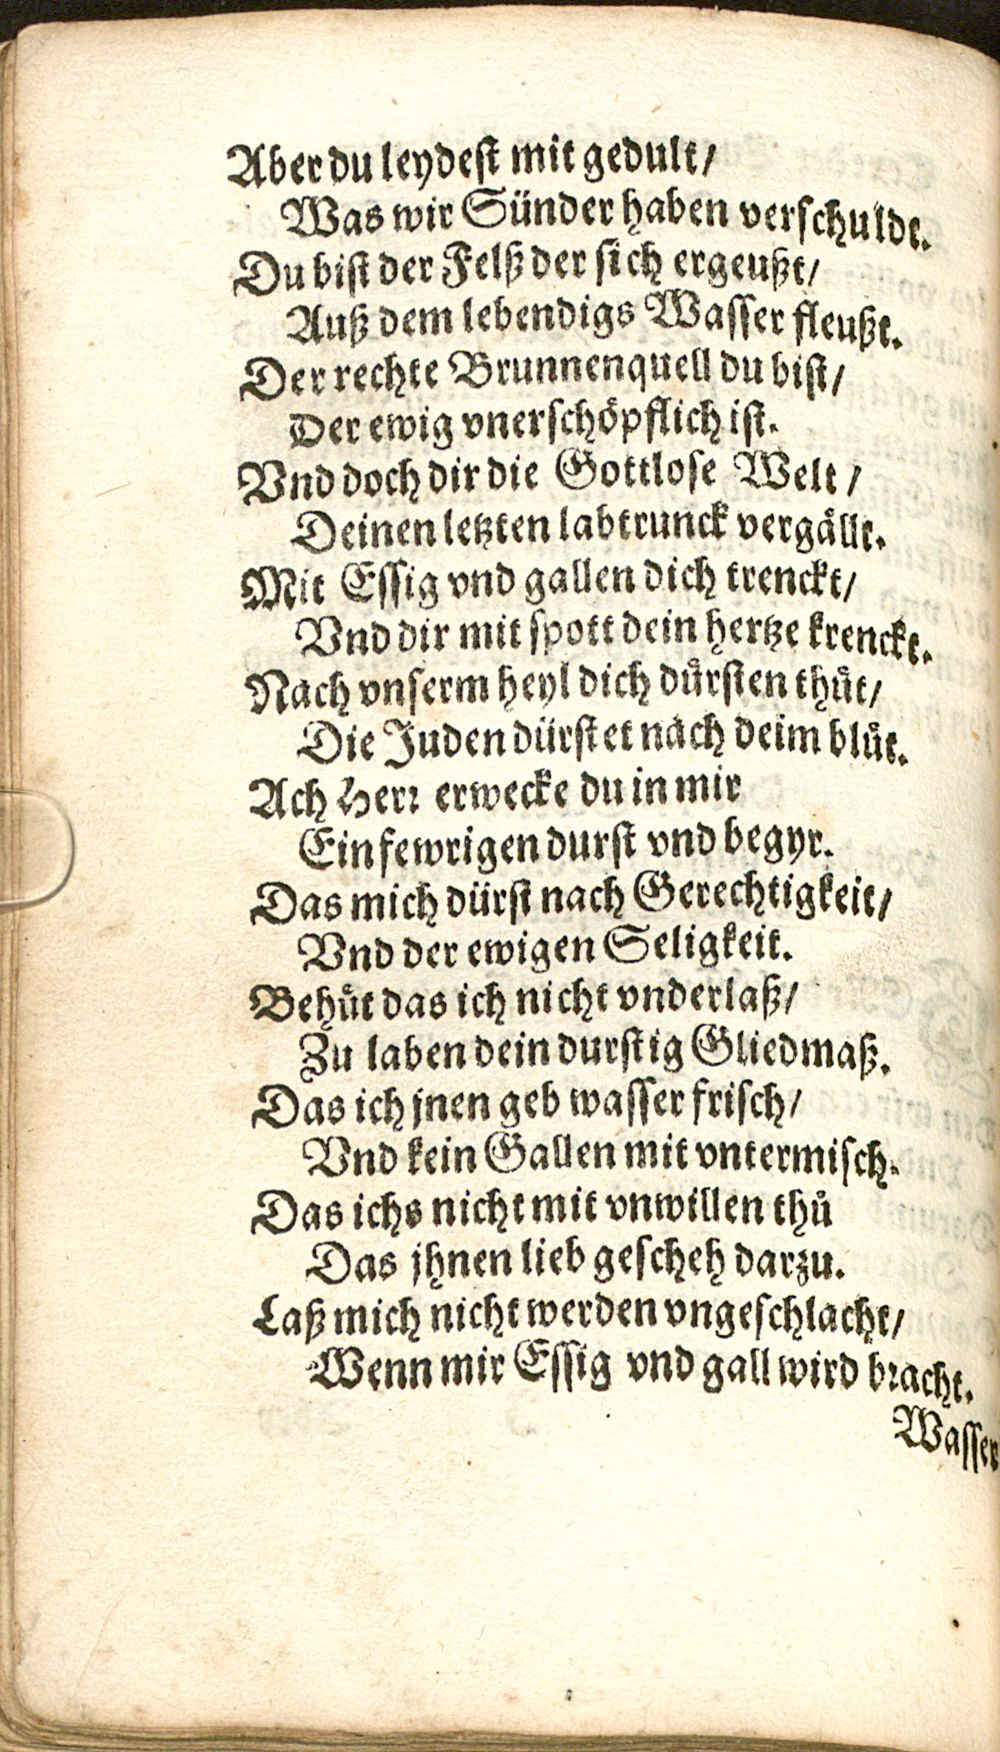 Aber du leydest mit gedult/
Was wir Sünder haben verschuldt.
Du bist der Felß der sich ergeußt/
Auß dem lebendigs Wasser fleußt.
Der rechte Brunnenquell du bist/
Der ewig vnerschöpflich ist.
Vnd doch dir die Gottlose Welt/
Deinen letzten labtrunck vergällt.
Mit Essig vnd gallen dich trenckt/
Vnd dir mit spott dein hertze krenckt.
Nach vnserm heyl dich dürsten thůt/
Die Juden dürstet nach deim blůt.
Ach Herr erwecke du in mir
Ein fewrigen durst vnd begyr.
Das mich dürst nach Gerechtigkeit/
Vnd der ewigen Seligkeit.
Behůt das ich nicht vnderlaß/
Zu laben dein durstig Gliedmaß.
Das ich jnen geb wasser frisch/
Vnd kein Gallen mit vntermisch.
Das ichs nicht mit vnwillen thů
Das jhnen lieb gescheh darzu.
Laß mich nicht werden vngeschlacht/
Wenn mir Essig vnd gall wird bracht.
Wasser